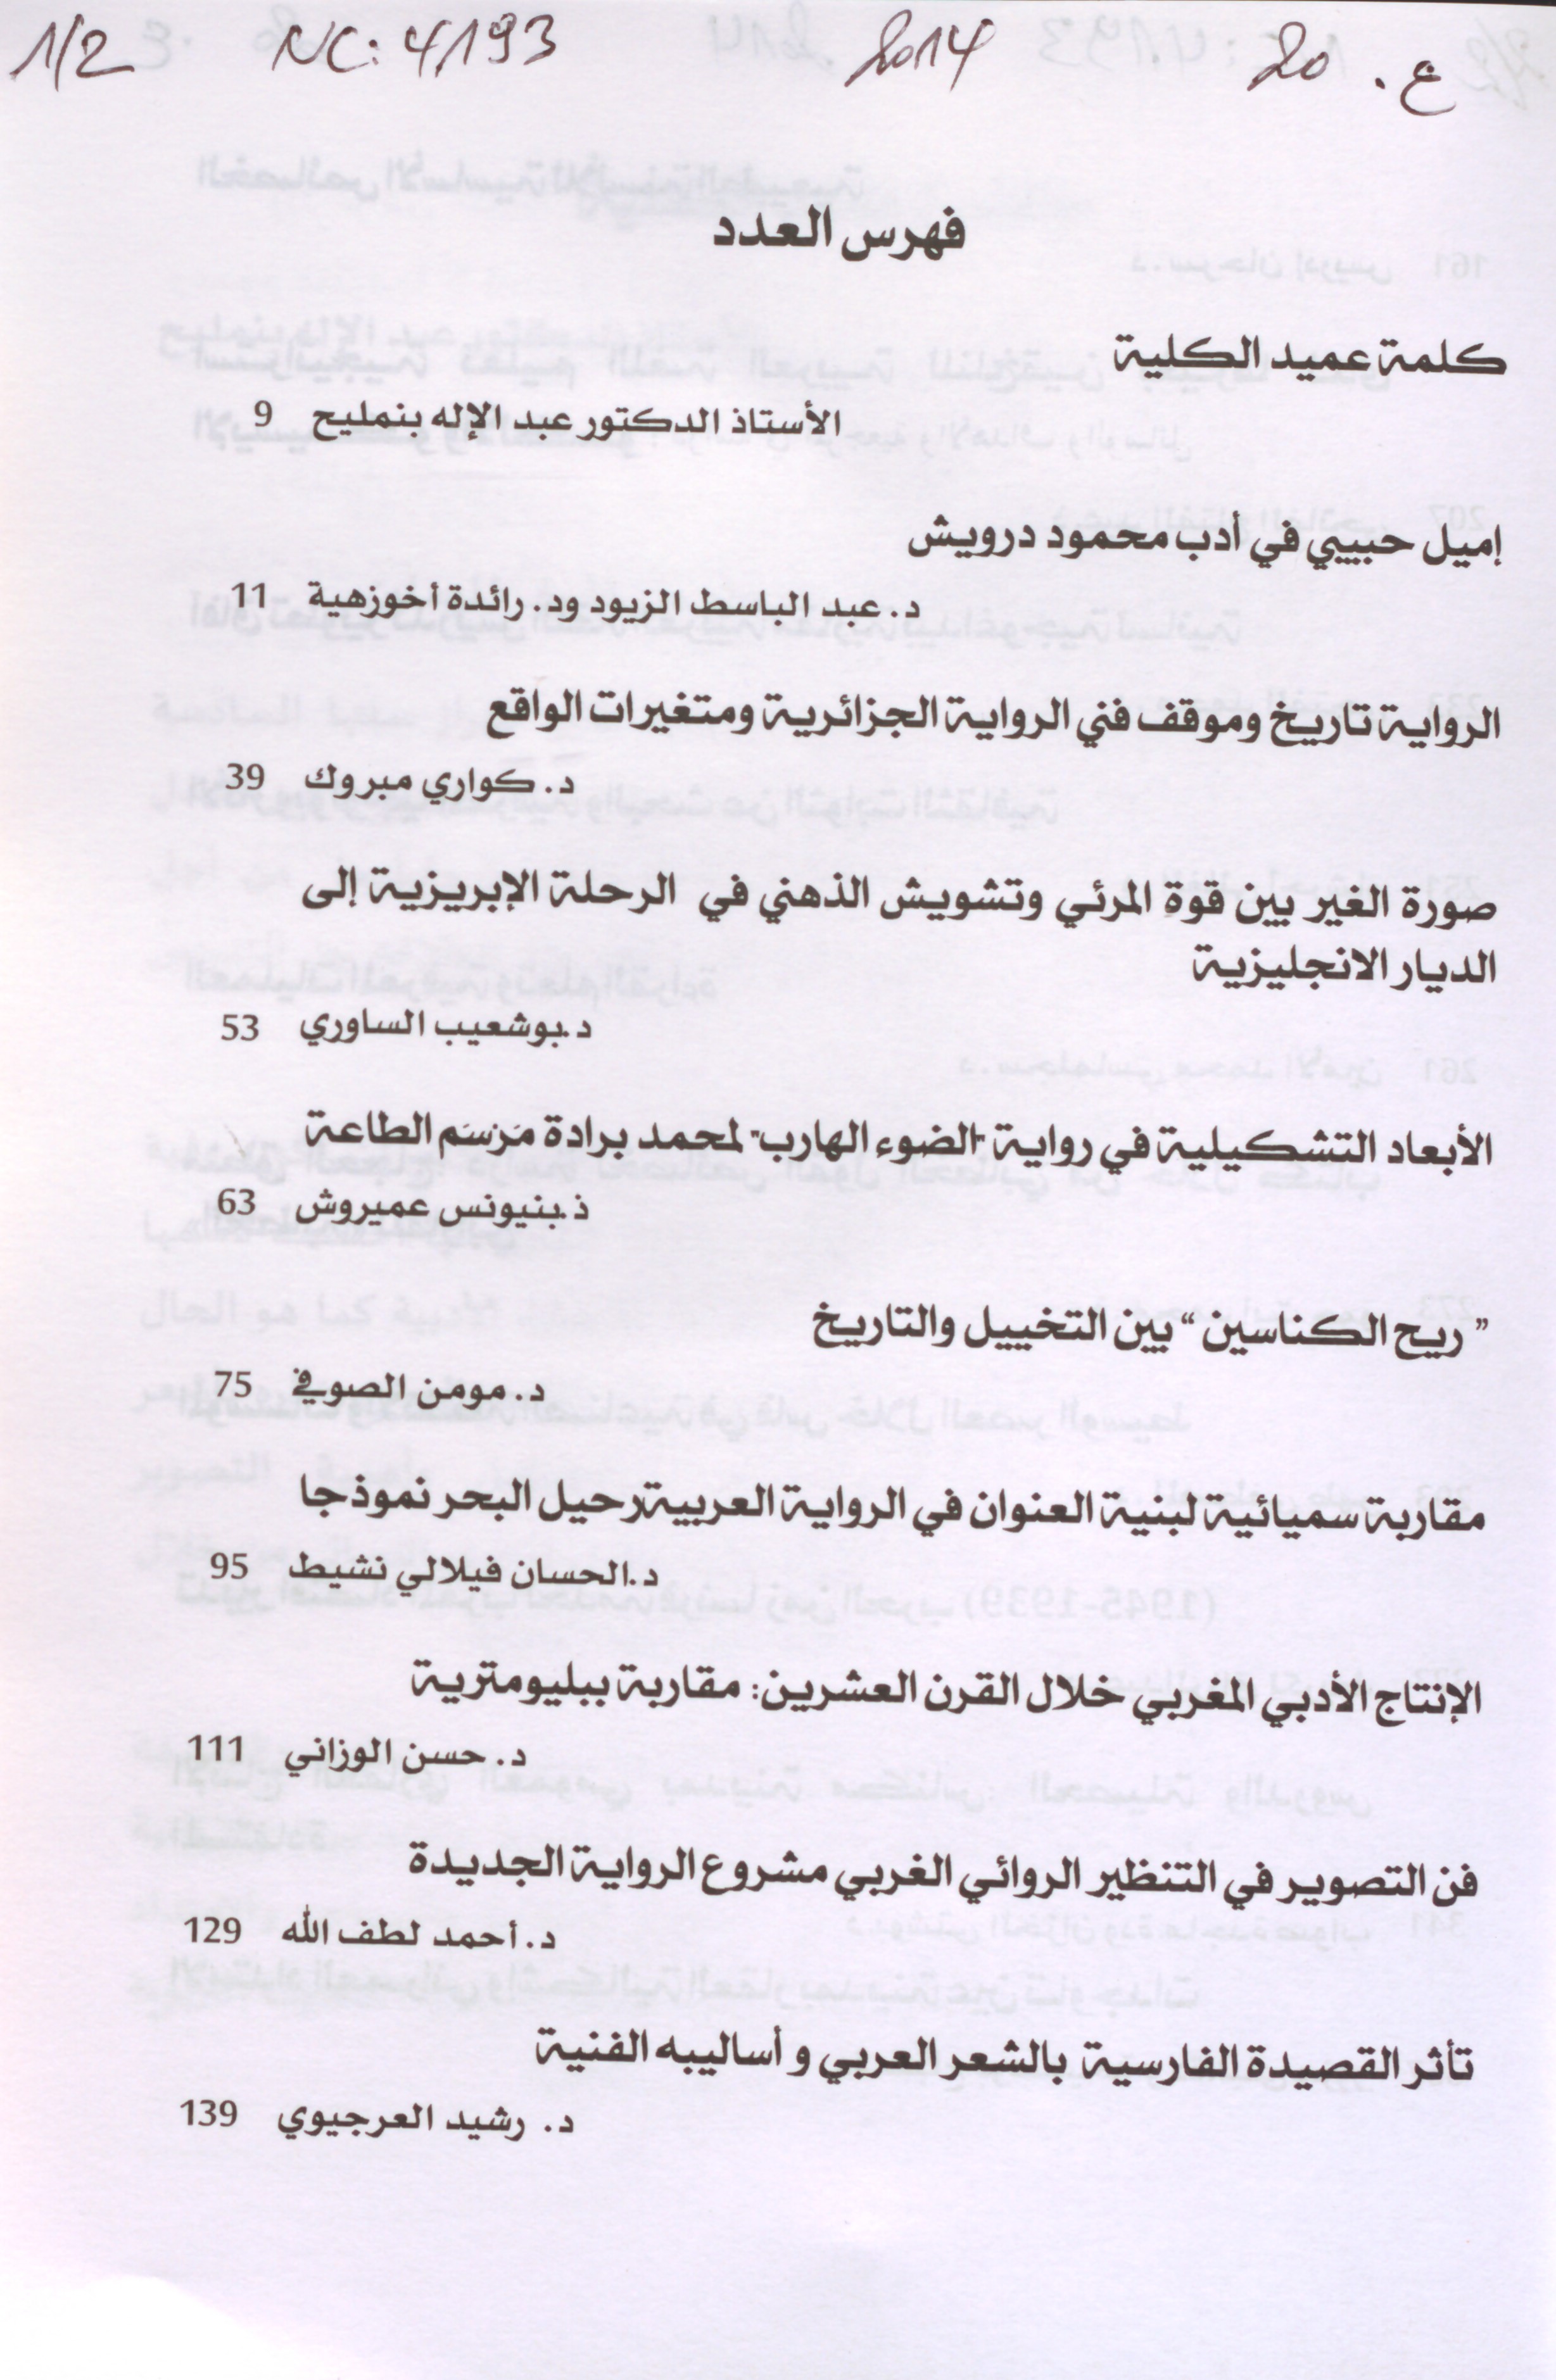 1/2 NC: 4193 2014 ع. 20
فهرس العدد
كلمة عميد الكلية
الأستاذ الدكتور عبد الإله بنمليح 9
إميل حبيبي في أدب محمود درويش
د. عبد الباسط الزيود ود. رائدة أخوزهية 11
الرواية تاريخ وموقف فني الرواية الجزائرية ومتغيرات الواقع
د. كواري مبروك 39
صورة الغير بين قوة المرئي وتشويش الذهني في الرحلة الإبريزية إلى
الديار الانجليزية
د.بوشعيب الساوري 53
الأبعاد التشكيلية في رواية "الضوء الهارب" لمحمد برادة مَرْسَم الطاعة
ذ.بنيونس عميروش 63
" ريح الكناسين " بين التخييل والتاريخ
د. مومن الصوفي 75
مقاربة سميائية لبنية العنوان في الرواية العربية:رحيل البحر نموذجا
د.الحسان فيلالي نشيط 95
الإنتاج الأدبي المغربي خلال القرن العشرين: مقاربة ببليومترية
د. حسن الوزاني 111
فن التصوير في التنظير الروائي الغربي مشروع الرواية الجديدة
د. أحمد لطف الله 129
تأثر القصيدة الفارسية بالشعر العربي و أساليبه الفنية
د. رشيد العرجيوي 139